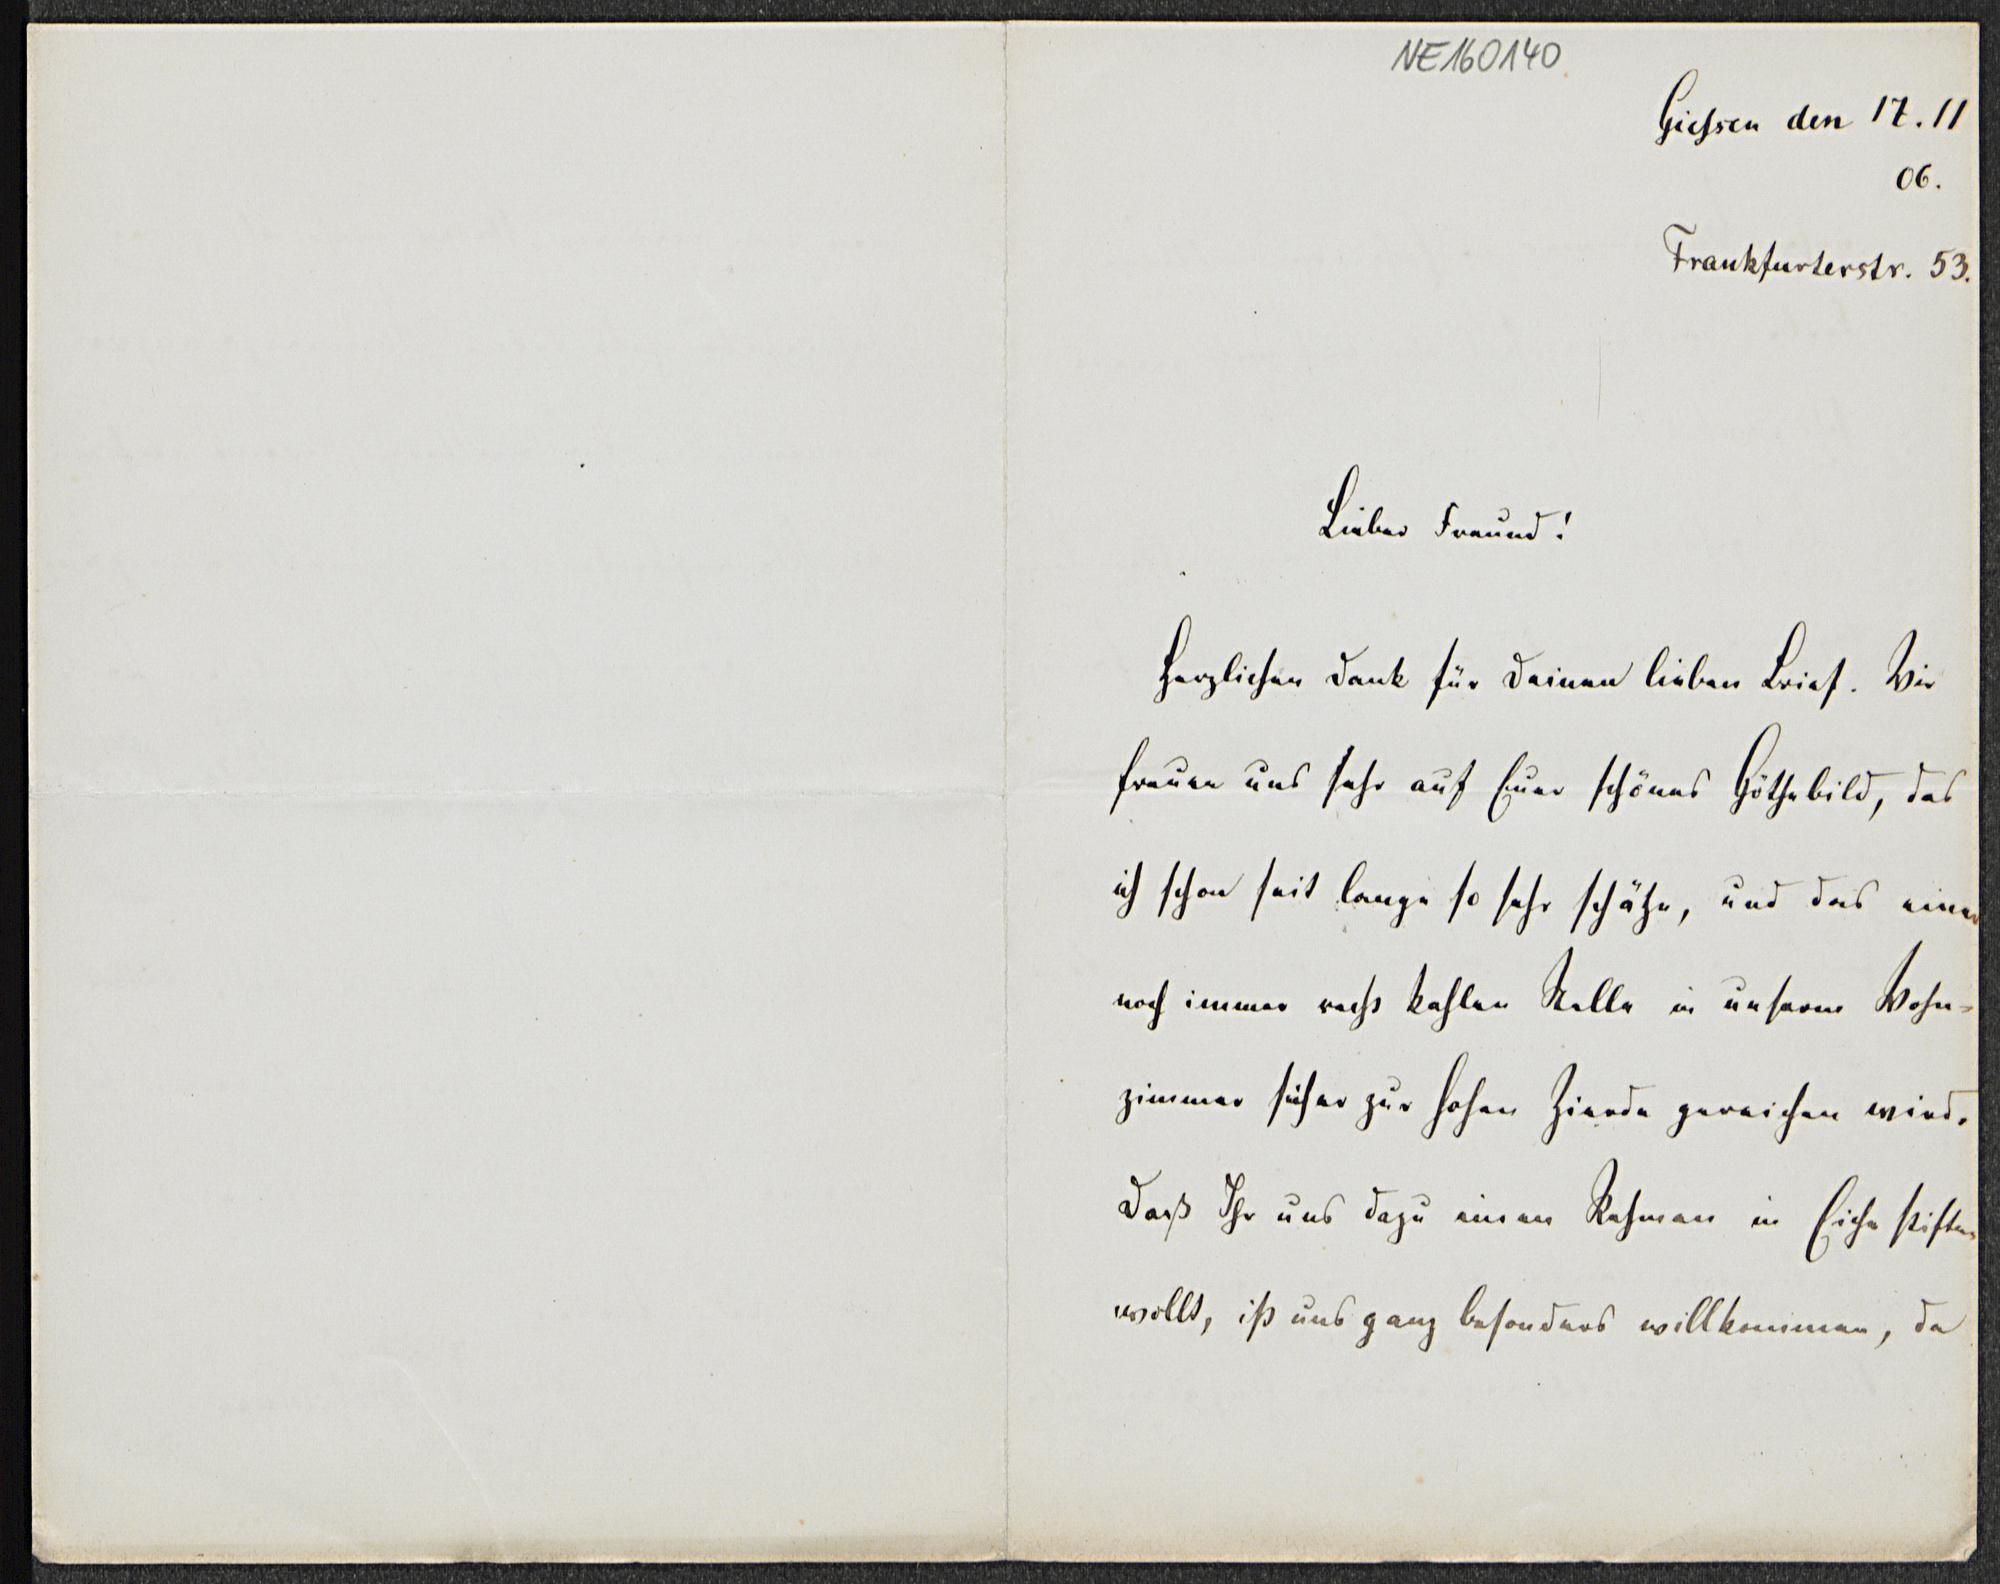 NE160140
Giessen den 17. 11
06.
Frankfurterstr. 53.
Lieber Freund!
Herzlichen Dank für Deinen lieben Brief. Wir
freuen uns sehr auf Euer schönes Göthebild, das
ich schon seit lange so sehr schätze, und das einer
noch immer recht kahlen Stelle in unserm Wohn=
zimmer sicher zur hohen Zierde gereichen wird.
Daß Ihr uns dazu einen Rahmen in Eiche stiften
wollt, ist uns ganz besonders willkommen, da